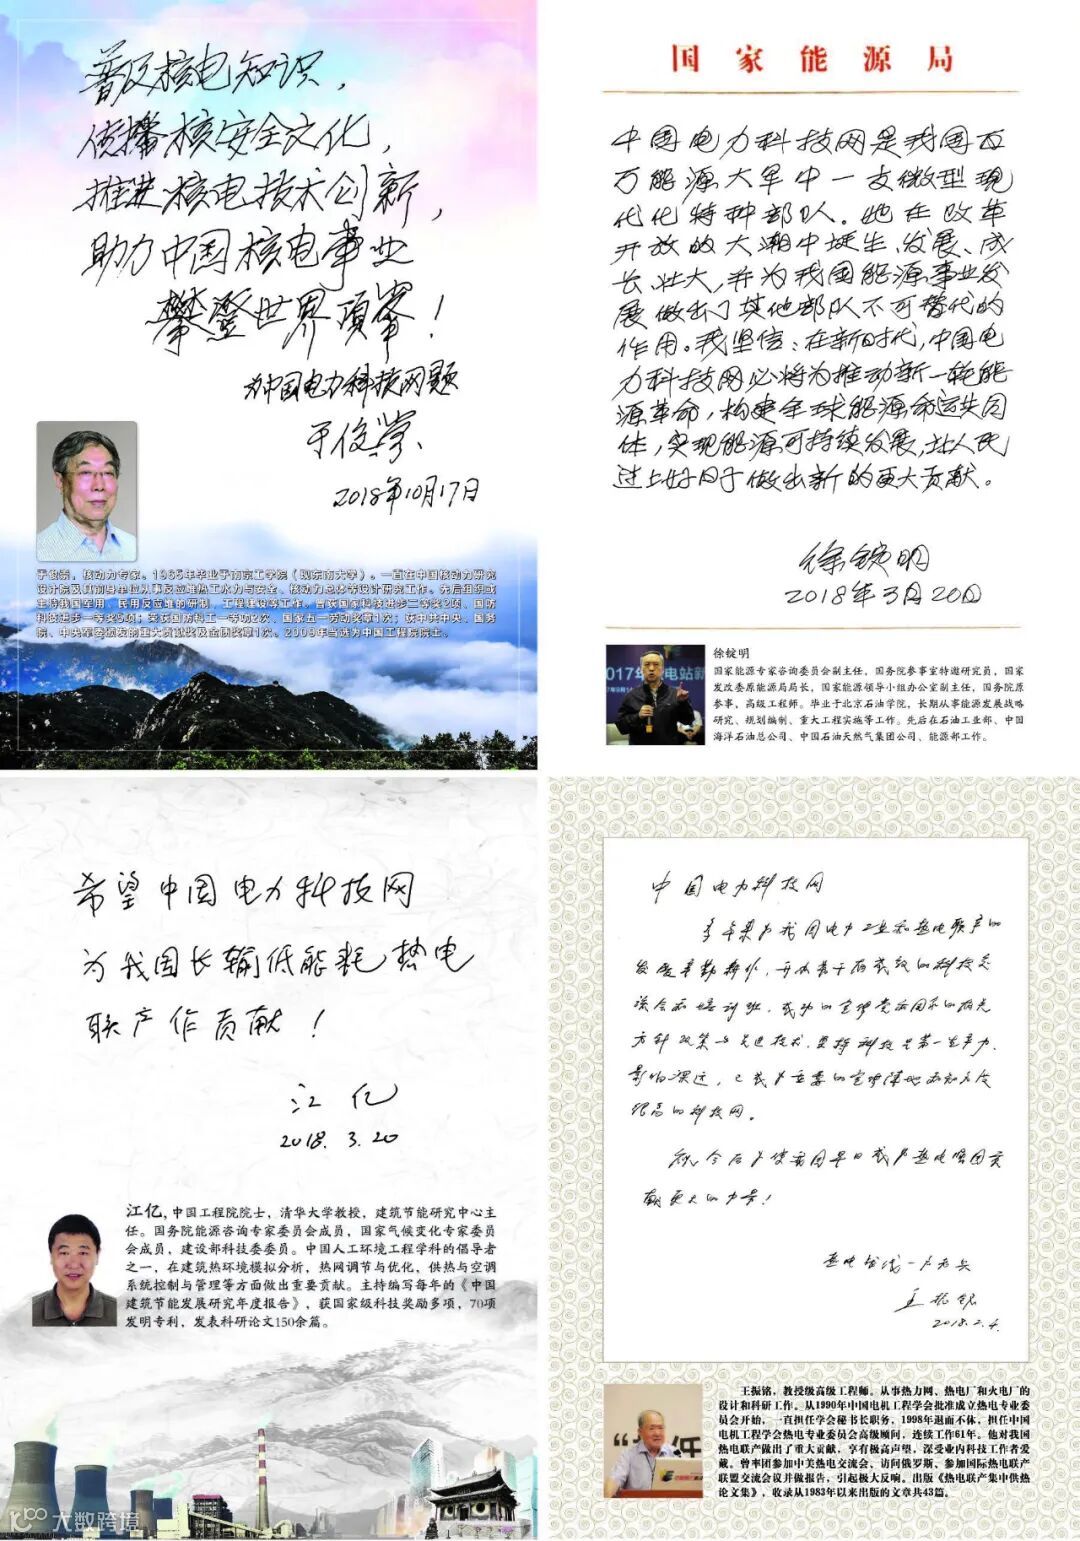 普及核电知识，
传播核安全文化，
推进核电技术创新，
助力中国核电事业
攀登世界顶峰！
为中国电力科技网题
于俊崇
2018年10月17日
于俊崇，核动力专家。1965年毕业于南京工学院（现东南大学）。一直在中国核动力研究
设计院及其前身单位从事反应堆热工水力与安全、核动力总体等设计研究工作。先后组织或
主持我国军用、民用反应堆的研制、工程建设等工作。曾获国家科技进步二等奖2项、国防
科技进步一等奖5项；荣获国防科工一等功2次、国家五一劳动奖章1次；获中共中央、国务
院、中央军委颁发的重大贡献奖及金质奖章1次。2009年当选为中国工程院院士。
国家能源局
中国电力科技网是我国百
万能源大军中一支微型现
代化特种部队。她在改革
开放的大潮中诞生、发展、成
长壮大，并为我国能源事业发
展做出了其他部队不可替代的
作用。我坚信：在新时代，中国电
力科技网必将为推动新一轮能
源革命，构建全球能源命运共同
体，实现能源可持续发展，让人民
过上好日子做出新的更大贡献。
徐锭明
2018年3月20日
2017年 电站新
徐锭明
国家能源专家咨询委员会副主任，国务院参事室特邀研究员，国家
发改委原能源局局长，国家能源领导小组办公室副主任，国务院原
参事，高级工程师。毕业于北京石油学院，长期从事能源发展战略
研究、规划编制、重大工程实施等工作。先后在石油工业部、中国
海洋石油总公司、中国石油天然气集团公司、能源部工作。
希望中国电力科技网
为我国长输低能耗热电
联产作贡献！
江亿
2018.3.20
江亿，中国工程院院士，清华大学教授，建筑节能研究中心主
任。国务院能源咨询专家委员会成员，国家气候变化专家委员
会成员，建设部科技委委员。中国人工环境工程学科的倡导者
之一，在建筑热环境模拟分析、热网调节与优化，供热与空调
系统控制与管理等方面做出重要贡献。主持编写每年的《中国
建筑节能发展研究年度报告》，获国家级科技奖励多项，70项
发明专利，发表科研论文150余篇。
大数跨境
中国电力科技网
多年来为我国电力工业和热电联产的
发展辛勤耕作，开办若干有成效的科技交
流会和培训班，成功的宣传党和国家的有关
方针政策与先进技术，坚持科技是第一生产力，
影响深远，已成为重要的宣传阵地和知名度
很高的科技网。
祝今后为使我国早日成为热电强国贡
献更大的力量！
热电战线一
王振铭
2018.2.4
王振铭，教授级高级工程师。从事热力网、热电厂和火电厂的
设计和科研工作。从1990年中国电机工程学会批准成立热电专业委
员会开始，一直担任学会秘书长职务，1998年退而不休，担任中国
电机工程学会热电专业委员会高级顾问，连续工作61年。他对我国
热电联产做出了重大贡献，享有极高声望，深受业内科技工作者爱
戴。曾率团参加中美热电交流会、访问俄罗斯、参加国际热电联产
联盟交流会议并做报告，引起极大反响。出版《热电联产集中供热
论文集》，收录从1983年以来出版的文章共43篇。